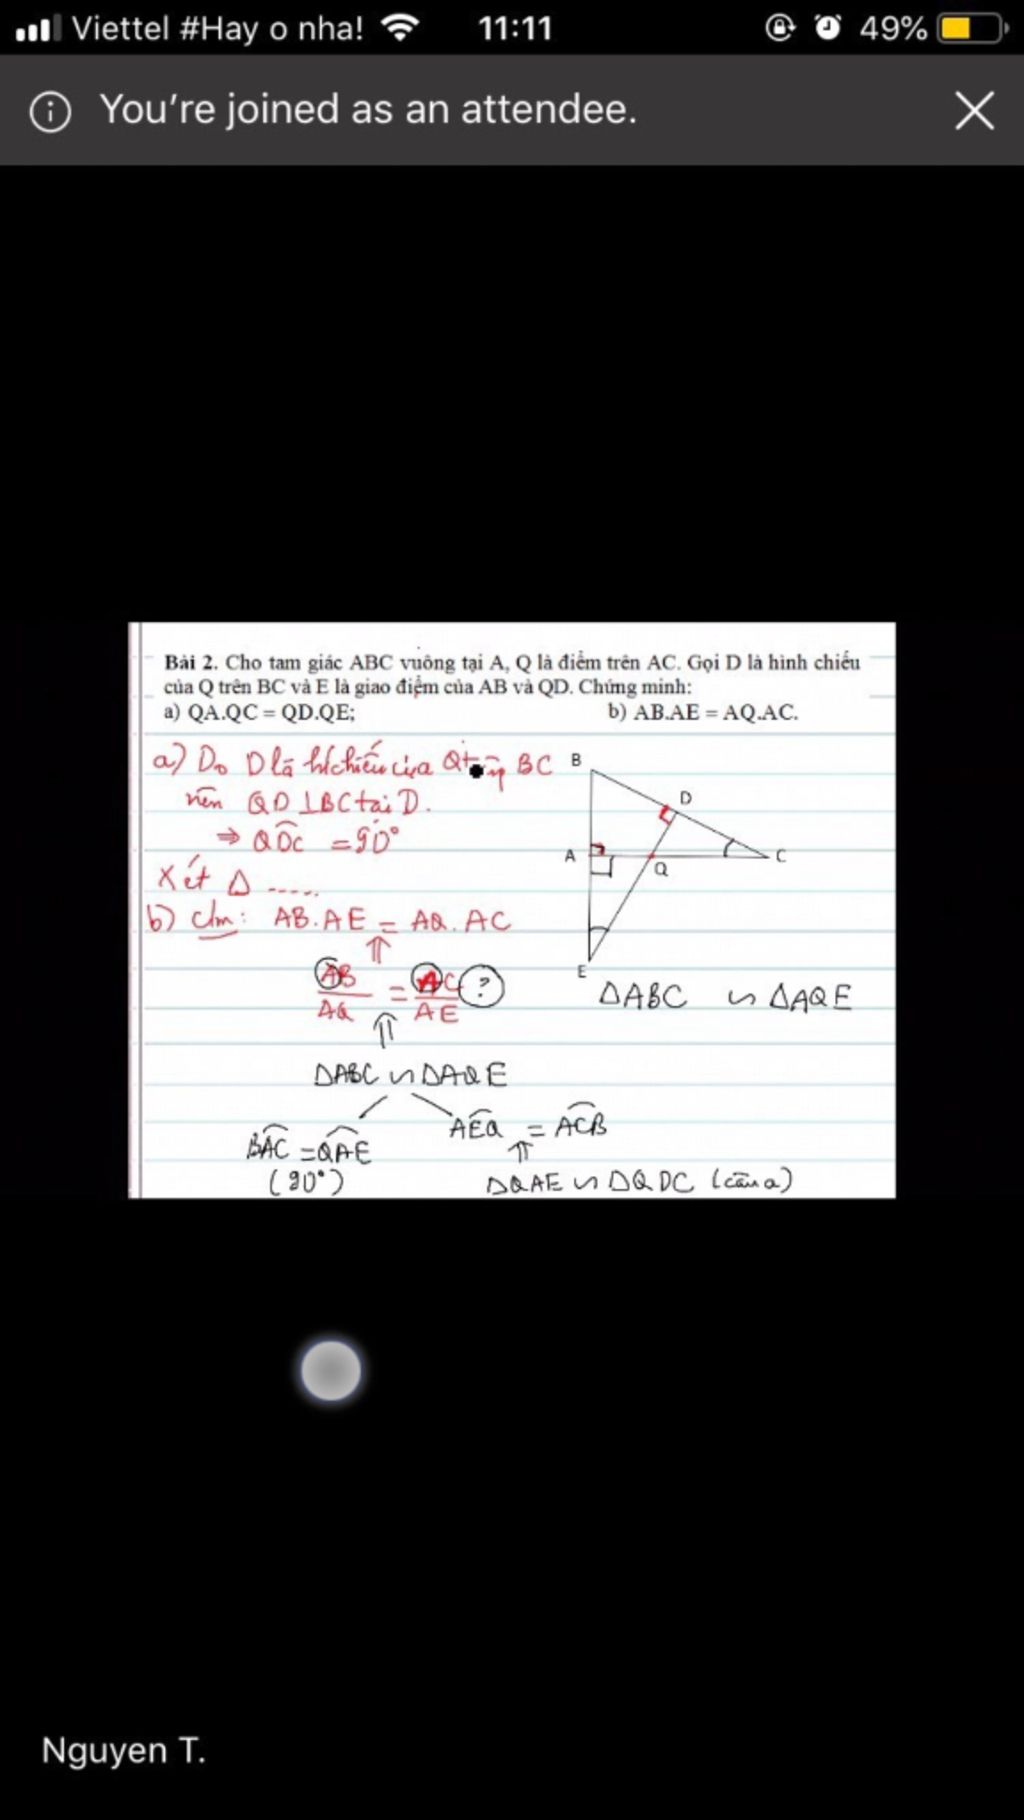 Viettel #Hay o nha! 11:11 49%
You’re joined as an attendee.
Bài 2. Cho tam giác ABC vuông tại A, Q là điểm trên AC. Gọi D là hình chiếu
của Q trên BC và E là giao điểm của AB và QD. Chứng minh:
a) QA.QC = QD.QE; b) AB.AE = AQ.AC.
a) Do D là h/chiếu của Q BC
nên QD ⊥ BC tại D.
⇒ QDC = 90°
Xét Δ .....
b) c/m: AB.AE = AQ.AC
⇑
AB/AQ = AC/AE ?
⇑
ΔABC ∽ ΔAQE
BAC = QAE
(90°)
AEQ = ACB
⇑
ΔQAE ∽ ΔQDC (câu a)
B
D
A
Q
C
E
ΔABC ∽ ΔAQE
Nguyen T.